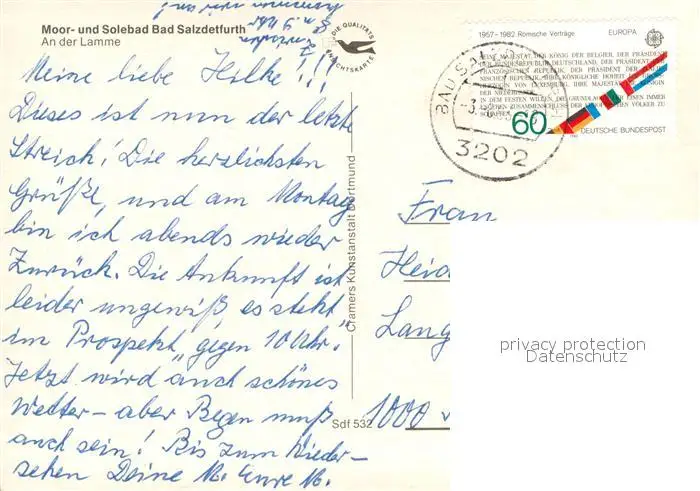 Moor- und Solebad Bad Salzdetfurth
An der Lamme
Meine liebe Hilke!!!
Dieses ist nun der letzte
Streich! Die herzlichsten
Grüße, und am Montag
bin ich abends wieder
Zurück. Die Ankunft ist
leider ungewiß, es steht
im Prospekt „gegen 10 Uhr.“
Jetzt wird auch schönes
Wetter – aber Regen muß
auch sein! Bis zum Wieder-
sehen Deine M. Eure M.
DIE QUALITÄTS
ANSICHTSKARTE
Cramers Kunstanstalt Dortmund
Sdf 532
1957-1982 Römische Verträge EUROPA
SEINE MAJESTÄT DER KÖNIG DER BELGIER, DER PRÄSIDENT
DER BUNDESREPUBLIK DEUTSCHLAND, DER PRÄSIDENT DER
FRANZÖSISCHEN REPUBLIK, DER PRÄSIDENT DER ITALIE-
NISCHEN REPUBLIK, IHRE KÖNIGLICHE HOHEIT DIE
VON LUXEMBURG, IHRE MAJESTÄT DIE KÖNIGIN
DER NIEDERLANDE
IN DEM FESTEN WILLEN, DIE GRUNDLAGEN FÜR EINEN IMMER
ENGEREN ZUSAMMENSCHLUSS DER EUROPÄISCHEN VÖLKER ZU
SCHAFFEN
60
DEUTSCHE BUNDESPOST
BAD SALZ
3202
Frau
Heid
Lang
1000
privacy protection
Datenschutz